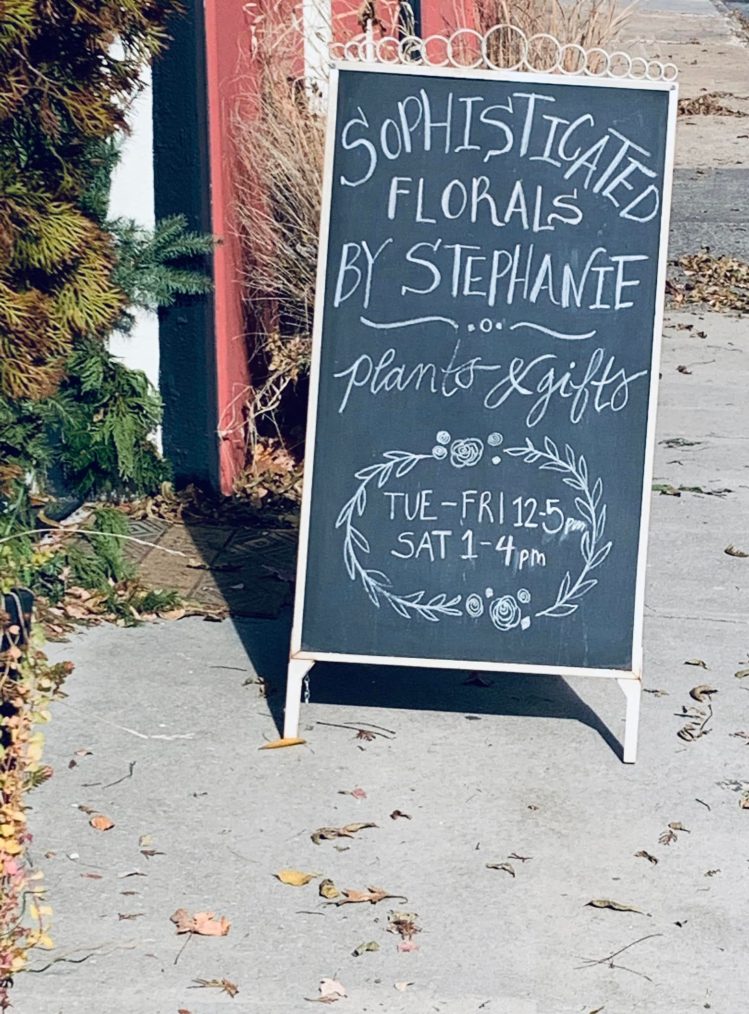 SOPHISTICATED
FLORALS
BY STEPHANIE
plants & gifts
TUE-FRI 12-5pm
SAT 1-4pm